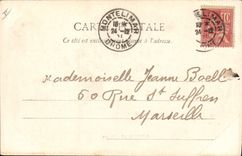 CARTE POSTALE
Ce côté est exclusivement réservé à l'adresse
MONTELIMAR
24 -12
DROME
10
Mademoiselle Jeanne
60 Rue St Suffren
Marseille